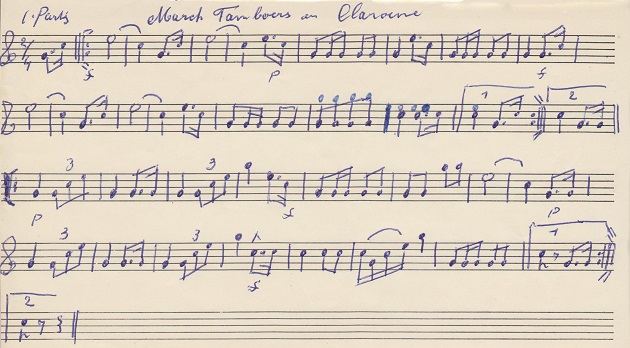 1. Parts March Tamboers en Claroene
2/4
f p f
1 2
3 3
p f p
3 3 1
f
2